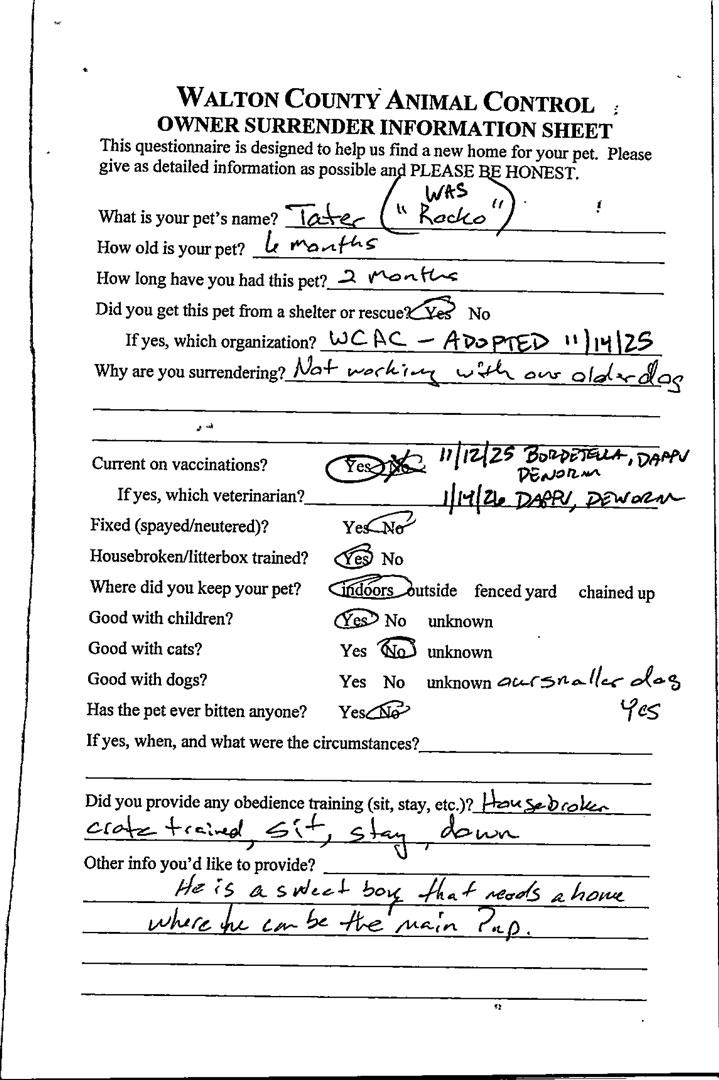 WALTON COUNTY ANIMAL CONTROL
OWNER SURRENDER INFORMATION SHEET
This questionnaire is designed to help us find a new home for your pet. Please
give as detailed information as possible and PLEASE BE HONEST.
WAS
What is your pet's name? Tater ("Rocko")
How old is your pet? 6 months
How long have you had this pet? 2 months
Did you get this pet from a shelter or rescue? Yes No
If yes, which organization? WCAC - ADOPTED 11/14/25
Why are you surrendering? Not working with our older dog
Current on vaccinations? Yes No 11/12/25 BORDETELLA, DAPPV
DEWORM
If yes, which veterinarian? 1/14/26 DAPPV, DEWORM
Fixed (spayed/neutered)? Yes No
Housebroken/litterbox trained? Yes No
Where did you keep your pet? indoors outside fenced yard chained up
Good with children? Yes No unknown
Good with cats? Yes No unknown
Good with dogs? Yes No unknown our smaller dog
Has the pet ever bitten anyone? Yes No Yes
If yes, when, and what were the circumstances?
Did you provide any obedience training (sit, stay, etc.)? Housebroken
crate trained, sit, stay, down
Other info you'd like to provide?
He is a sweet boy that needs a home
where he can be the main Pup.